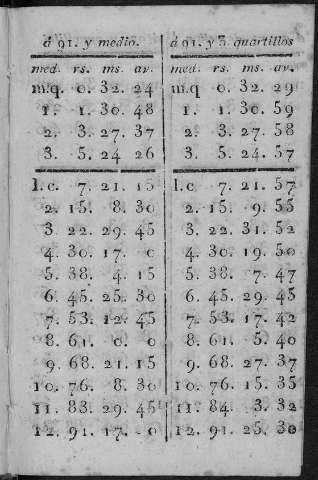 á 91. y medio.
med. rs. ms. av.
m.q. 0. 32. 24
1. 1. 30. 48
2. 3. 27. 37
3. 5. 24 26
1.c. 7. 21. 15
2. 15. 8. 30
3. 22. 29. 45
4. 30. 17. 0
5. 38. 4. 15
6. 45. 25. 30
7. 53. 12. 45
8. 61. 0. 0
9. 68. 21. 15
10. 76. 8. 30
11. 83. 29. 45
12. 91. 17. 0
á 91. y 3. quartillos
med. rs. ms. av.
m.q 0. 32. 29
1. 1. 30. 59
2. 3. 27. 58
3. 5. 24. 57
1.c. 7. 21. 57
2. 15. 9. 55
3. 22. 31. 52
4. 30. 19. 50
5. 38. 7. 47
6. 45. 29. 45
7. 53. 17. 42
8. 61. 5. 40
9. 68. 27. 37
10. 76. 15. 35
11. 84. 3. 32
12. 91. 25. 30